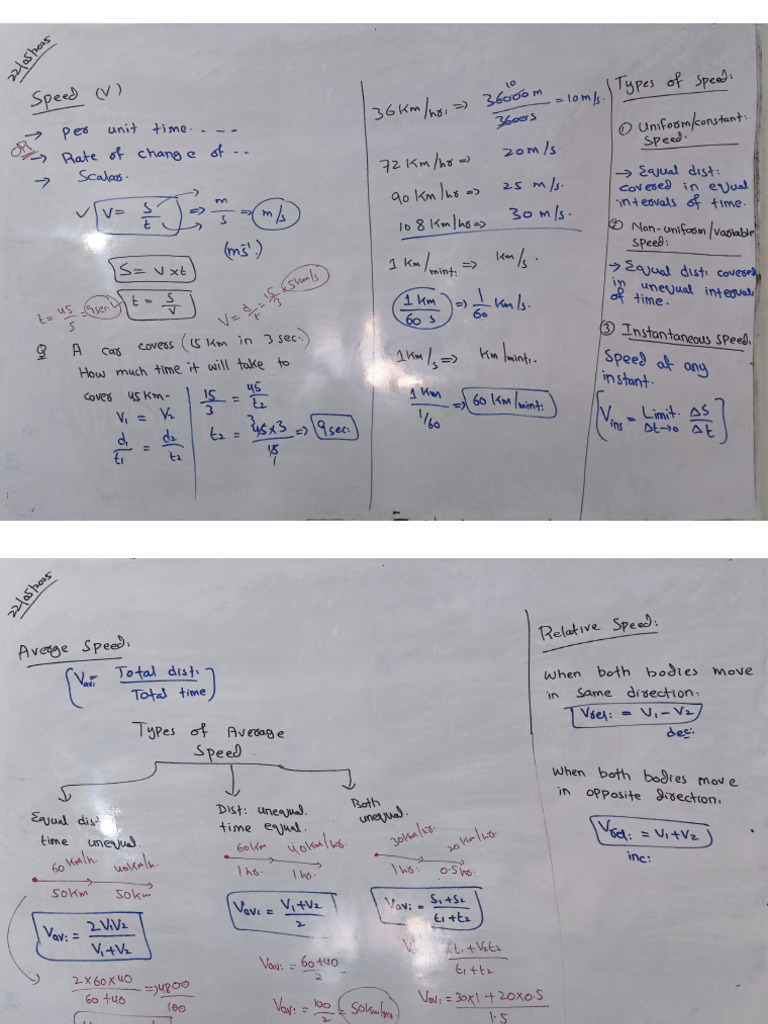 22/05/2025
Speed (V)
→ Per unit time....
OR
→ Rate of change of ..
→ Scalar.
√ V = S/t ⇒ m/s ⇒ m/s
(ms⁻¹)
S = V×t
t = S/V
t = 45/5 = 9sec:
V = d/t = 15/3 = 5km/s
Q A car covers (15 Km in 3 sec.)
How much time it will take to
cover 45Km.
V₁ = V₂
d₁/t₁ = d₂/t₂
15/3 = 45/t₂
t₂ = 45×3/15 ⇒ 9sec:
36Km/hr: ⇒ 36000m/3600s = 10m/s.
10
72 Km/hr ⇒ 20m/s.
90 Km/hr ⇒ 25 m/s.
108 Km/hr ⇒ 30 m/s.
1 Km/mint: ⇒ Km/s.
1 Km/60 s ⇒ 1/60 Km/s.
1Km/s ⇒ Km/mint:.
1 Km/1/60 ⇒ 60 Km/mint:
Types of Speed:
① Uniform/constant:
Speed:
→ Equal dist:
covered in equal
intervals of time.
② Non-uniform/Variable
Speed:
→ Equal dist: covered
in unequal interval
of time.
③ Instantaneous speed.
Speed at any
instant.
Vins = Limit. Δt→0 ΔS/Δt
22/05/2025
Average Speed:
Vav: = Total dist:/Total time
Types of Average
Speed
Equal dis
time unequal.
60 Km/h. 40Km/h.
50Km 50Km
Vav: = 2V₁V₂/V₁+V₂
2×60×40/60+40 ⇒ 4800/100
Dist: unequal.
time equal.
60Km 40Km/hr.
1hr. 1hr.
Vav: = V₁+V₂/2
Vav: = 60+40/2
Vav: = 100/2 = 50Km/hr
Both
unequal.
30Km/hr. 20Km/hr.
1hr. 0.5hr.
Vav: = S₁+S₂/t₁+t₂
t₁+V₂t₂/t₁+t₂
Vav: = 30×1+20×0.5/1.5
Relative Speed:
when both bodies move
in same direction.
Vrel: = V₁-V₂
dec:
when both bodies move
in opposite direction.
Vrel: = V₁+V₂
inc: